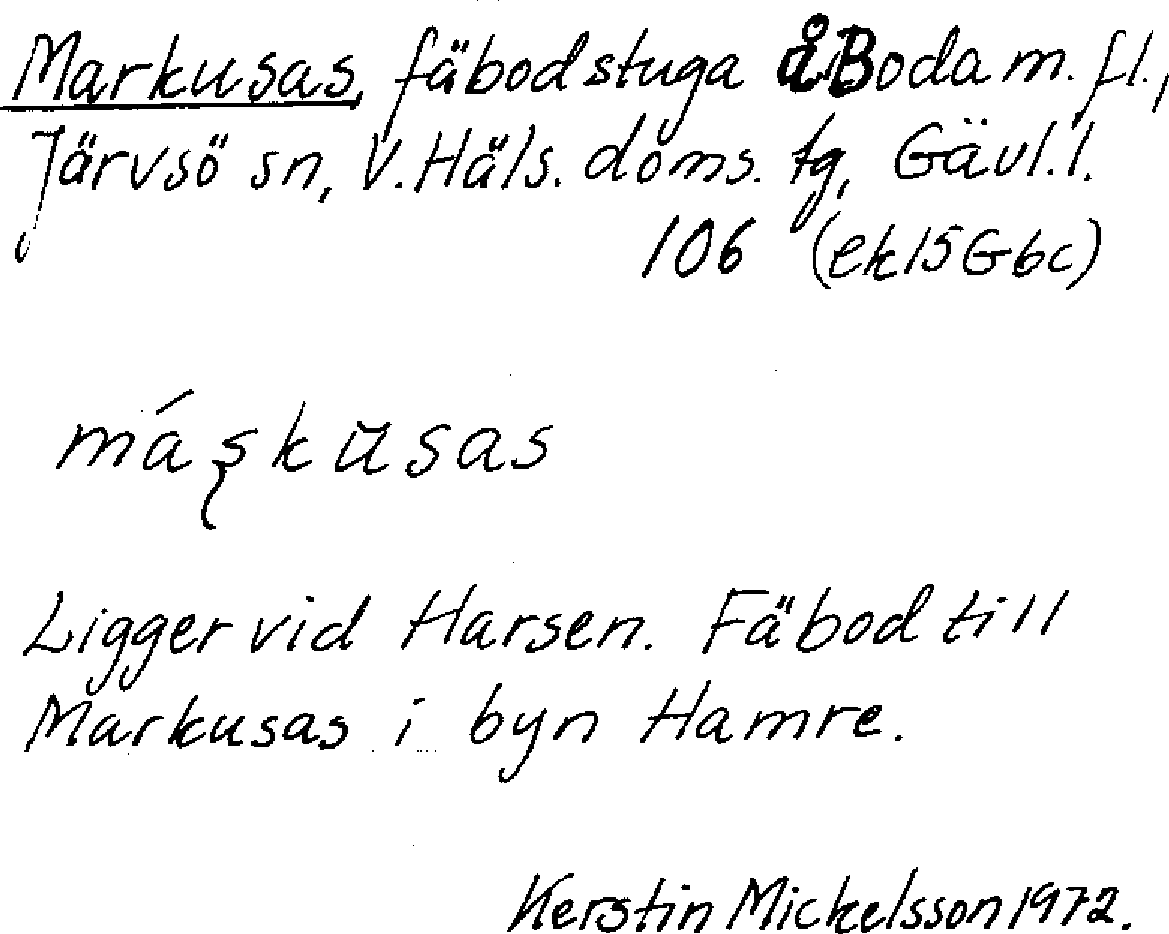 Markusas, fäbodstuga å Boda m. fl.,
Järvsö sn, V. Häls. doms. tg, Gävl. l.
106 (ek 15 G 6c)
Ligger vid Harsen. Fäbod till
Markusas i byn Hamre.
Kerstin Mickelsson 1972.